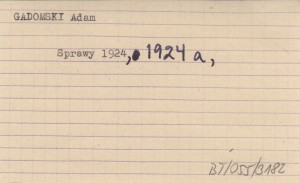 GADOMSKI Adam
Sprawy 1924, 1924 a,
BT/055/3182